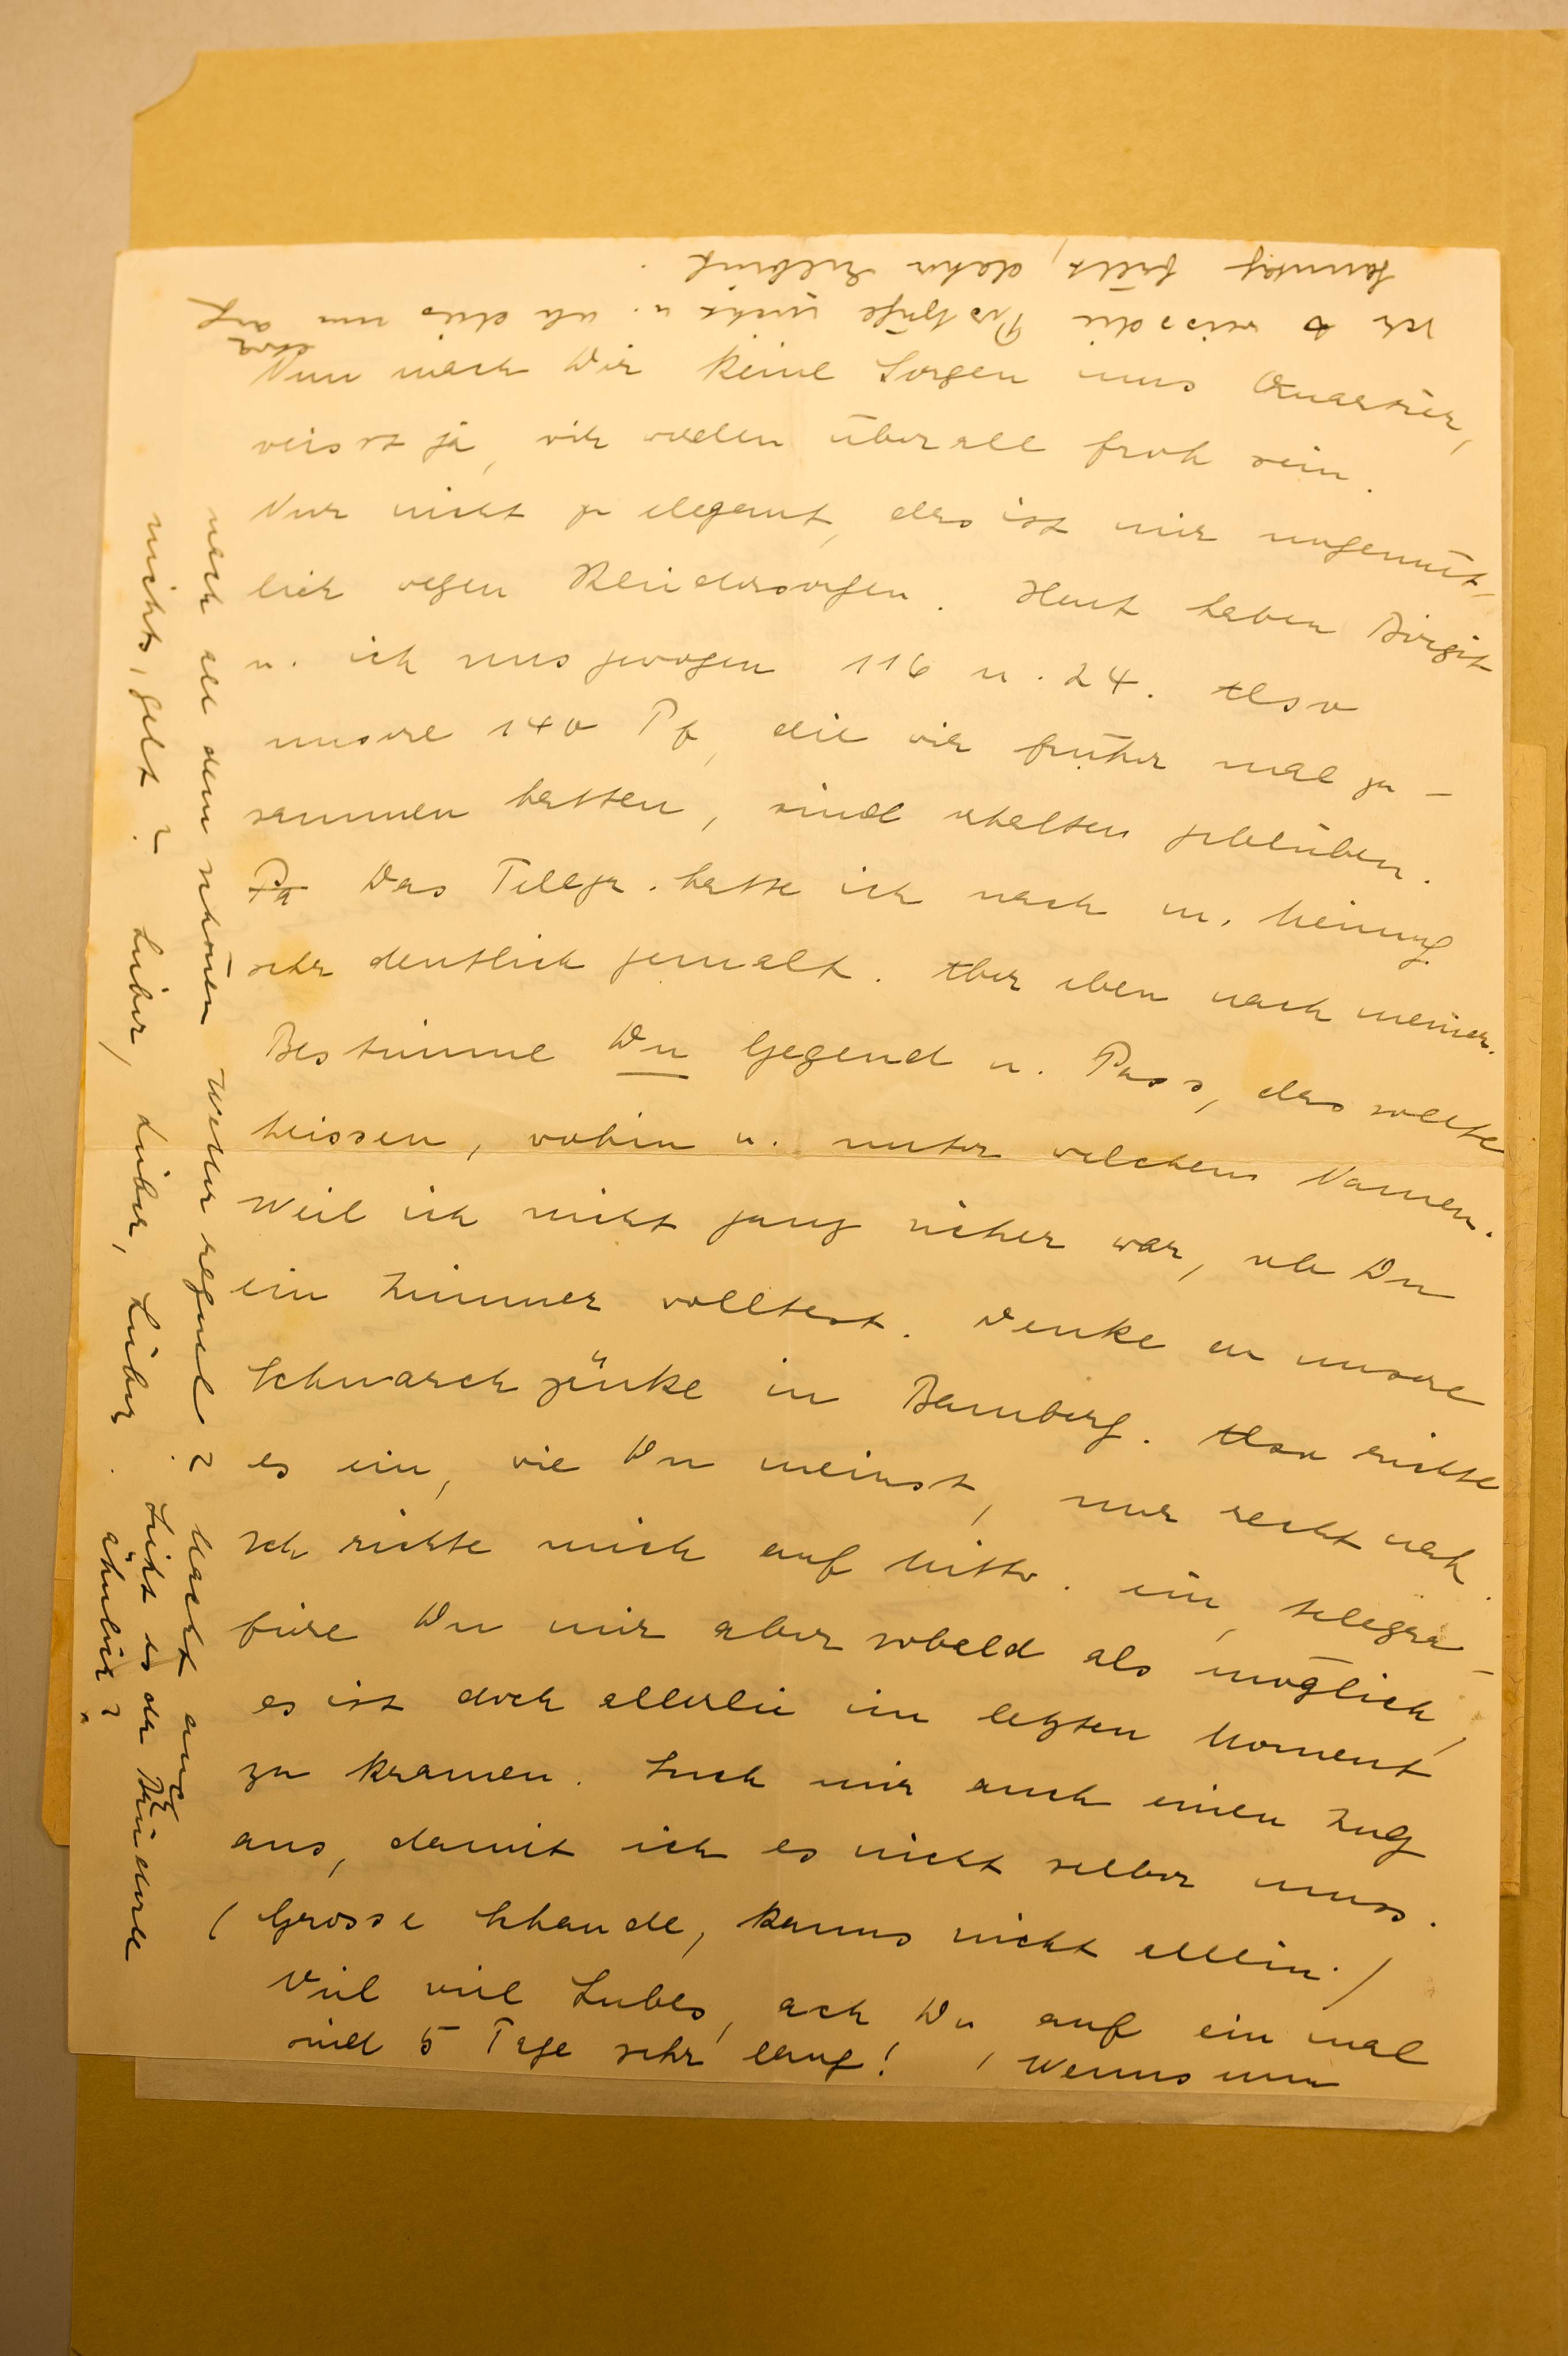 Nun mach Dir keine Sorgen ums Quartier,
weisst ja, wir werden überall froh sein.
Nur nicht zu elegant, das ist mir ungemüt-
lich wegen Kleidersorgen. Heut haben Birgit
u. ich uns gewogen 116 u. 24. Also
unsere 140 Pf, die wir früher mal zu-
sammen hatten, sind erhalten geblieben.
Das Telegr. hatte ich nach m. Meinung
sehr deutlich gemalt. Aber eben nach meiner.
Bestimme Du Gegend u. Pass, das sollte
heissen, wohin u. unter welchem Namen.
Weil ich nicht ganz sicher war, ob Du
ein Zimmer wolltest. Denke an unsere
in Bamberg. Also richte
es ein, wie Du meinst, nur recht nah.
Ich richte mich auf Mittw. ein, telegra-
fiere Du mir aber sobald als möglich,
es ist doch allerlei im letzten Moment
zu kramen. Such mir auch einen Zug
aus, damit ich es nicht selber muss.
(Grosse Schande, kanns nicht allein.)
Viel viel Liebes, ach Du auf ein mal
sind 5 Tage sehr lang! (Wenns nun
nach all dem schönen Wetter regnet? Macht auch
nichts, gelt? Lieber, Lieber, Lieber. Sieht es der
ähnlich?
Ich weiss die nicht u. ob dies nun auf
etwa
Sonntag fällt, daher Eilbrief.